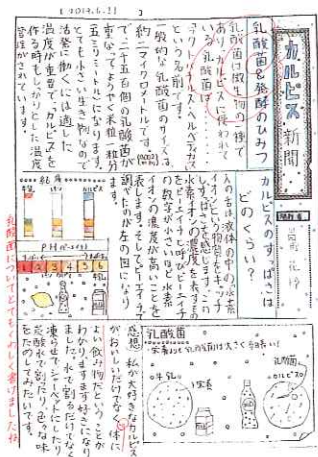 (2017.6.21)
カルピス新聞
乳酸菌&発酵のひみつ
乳酸菌は微生物の種で
あり、カルピスに使われて
いる乳酸菌は
ラクトバチルス・ヘルベティカス
という名前です。
一般的な乳酸菌のサイズは
約二マイクロメートルです。
で二千五百個の乳酸菌が
重なってようやく米粒一粒分
五ミリメートルになります。
とても小さい生き物なので
活発に働くには適した
温度が重要で、カルピスを
作る時もしっかりとした温度
管理がされています。
カルピスのすっぱさは
どのくらい?
人の舌は液体の中の水素
イオンという物質をキャッチ
しすっぱさを感じます。この
水素イオンの濃度を表すもの
をピーエイチと呼びピーエイチ
の数字が小さいほど水素
イオンの濃度が高いことを
表します。そしてピーエイチで
調べたのが左の図になり
ます。
PH(ピーエイチ)
1 2 3 4 5 6
乳酸菌
栄養
牛乳
乳酸菌
カルピス
感想 私が大好きなカルピス
がおいしいだけでなく、体に
よい飲み物だということが
わかりますます好きになり
ました。水で割るだけでなく
凍らせてシャーベットにしたり
炭酸水で割ったり色々な味
をたのしみたいです。
乳酸菌についてとてもくわしく書けましたね